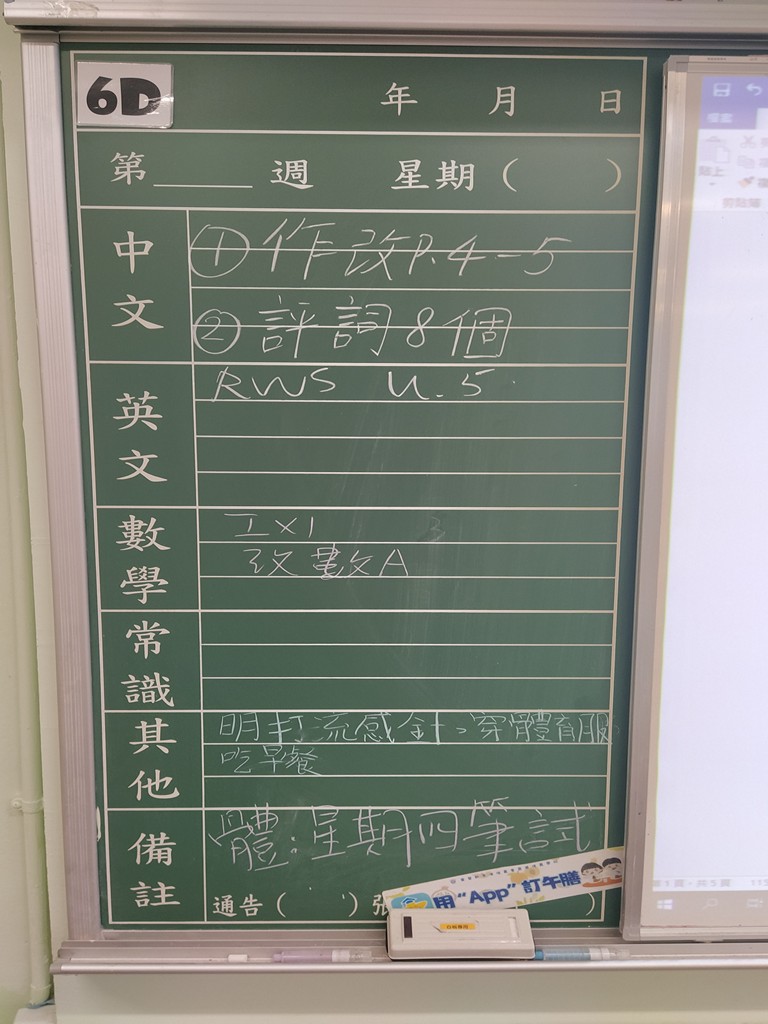 6D
年 月 日
第____週 星期( )
中文
①作改P.4-5
②評詞8個
英文
RWS U.5
數學
工×1
改數A
常識
其他
明打流感針、穿體育服
吃早餐
備註
體:星期四筆試
通告( )張
用“App”訂午膳
)
檔案
貼上
剪貼簿